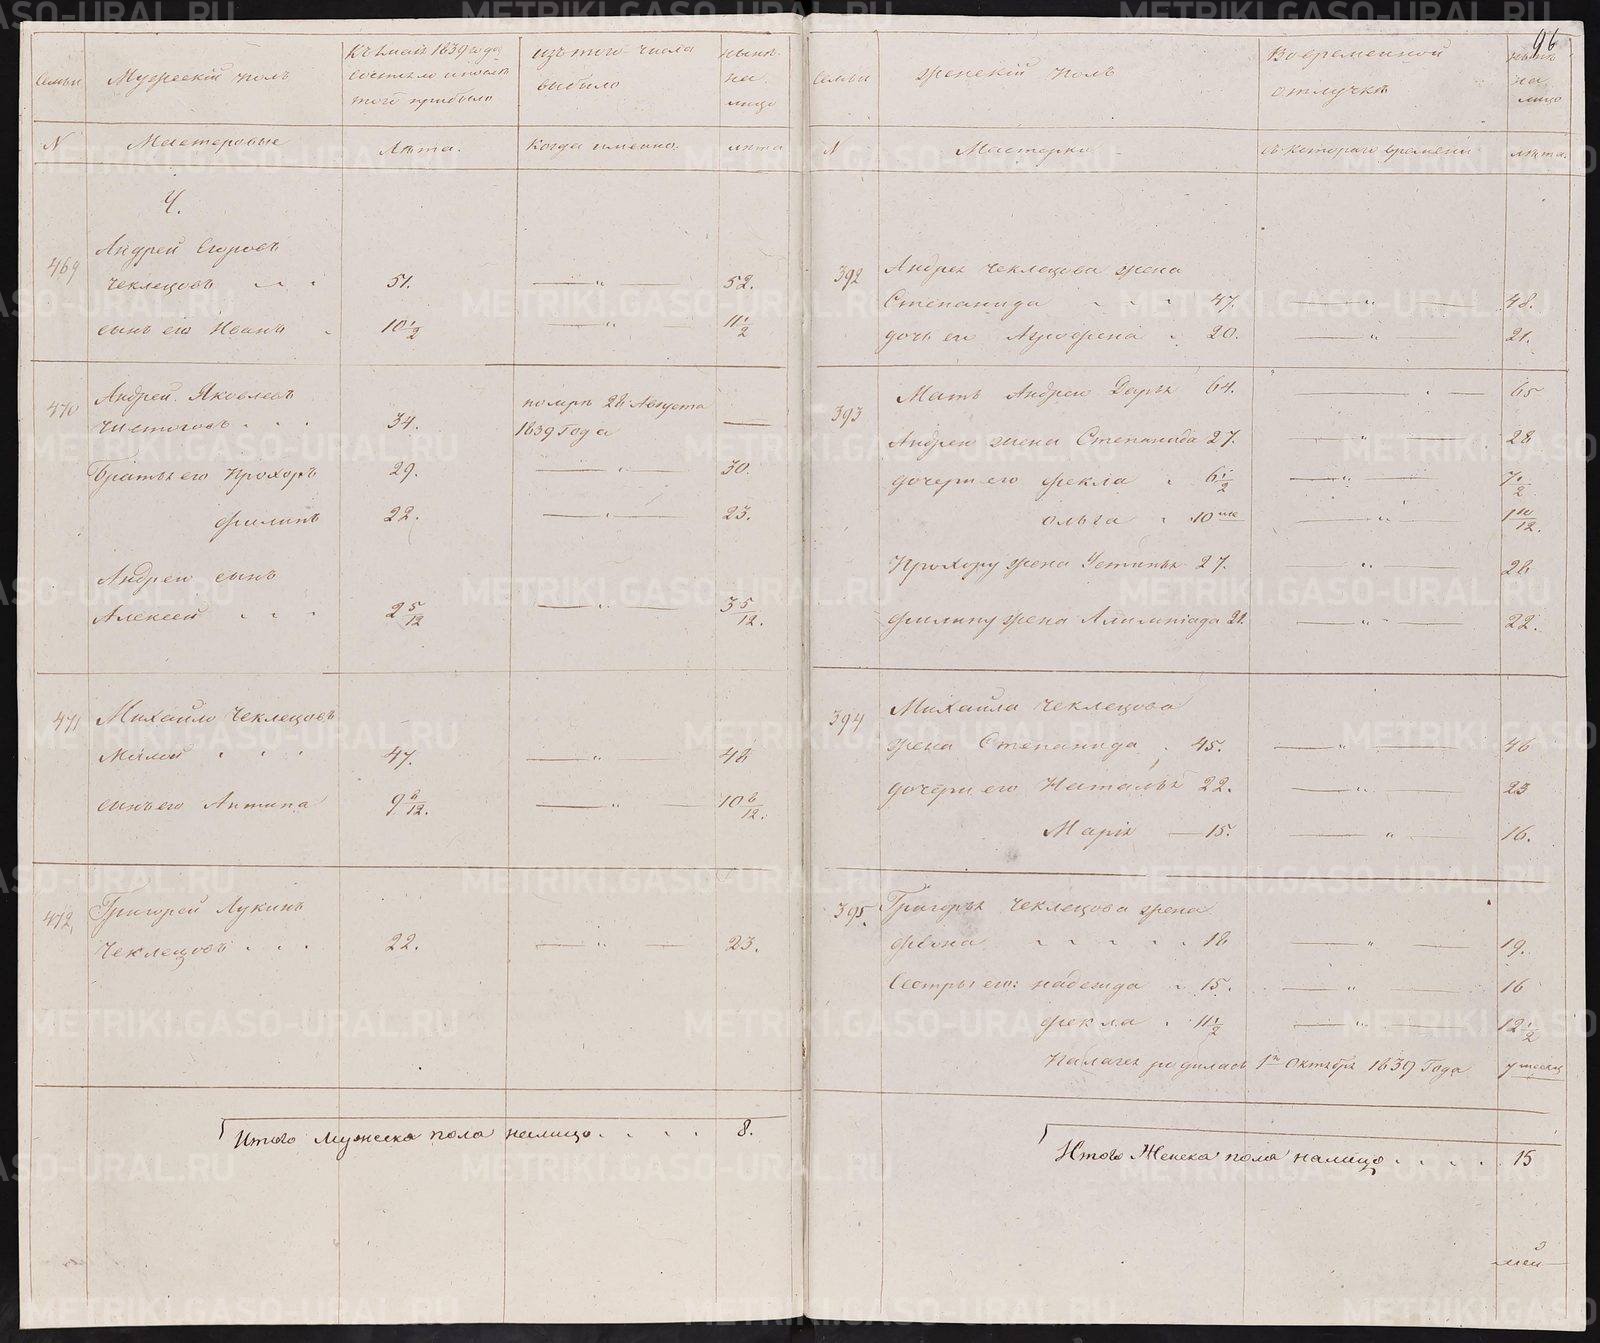 96
Семьи
Мужескій полъ
Къ 1 Маія 1839 года
состояло и после
того прибыло
изъ того числа
выбыло
нынѣ
на
лицо
N
Мастеровые
Лѣта.
Когда именно.
лѣта
Ч.
469
Андрей Егоровъ
Чеклецовъ 51. — „ — 52.
сынъ его Иванъ 10 1/2 — „ — 11 1/2
470
Андрей Яковлевъ
Чистоговъ 34. помре 28 Августа
1839 Года —
Братья его Прохоръ 29. — „ — 30.
Филипъ 22. — „ — 23.
Андрею сынъ
Алексей 2 5/12 — „ — 3 5/12.
471
Михайло Чеклецовъ
Малой 47. — „ — 48
сынъ его Антипа 9 8/12. — „ — 10 8/12.
472.
Григорей Лукинъ
Чеклецовъ 22. — „ — 23.
Итого Мужеска пола налицо 8.
Семьи
женскій полъ
Во временной
отлучкѣ
нынѣ
на
лицо
N
Мастерки
съ котораго времени
лѣта.
392
Андрея Чеклецова жена
Степанида 47. — „ — 48.
дочь его Агрофена 20. — „ — 21.
393
Мать Андрею Дарья 64. — „ — 65
Андрею жена Степанида 27. — „ — 28
дочери его Фекла 6 1/2 — „ — 7 1/2
Ольга 10 ме — „ — 1 10/12.
Прохору жена Устинья 27. — „ — 28
Филипу жена Алимпіада 21. — „ — 22.
394
Михаила Чеклецова
жена Степанида 45. — „ — 46
дочери его Наталья 22. — „ — 23
Марія — 15. — „ — 16.
395.
Григорья Чеклецова жена
Фёона 18 — „ — 19.
Сестры его: Надежда 15. — „ — 16
Фекла 11 1/2 — „ — 12 1/2
Палагея родилась 1го Октября 1839 Года 7 месяц
Итого Женска пола налицо 15
METRIKI.GASO-URAL.RU